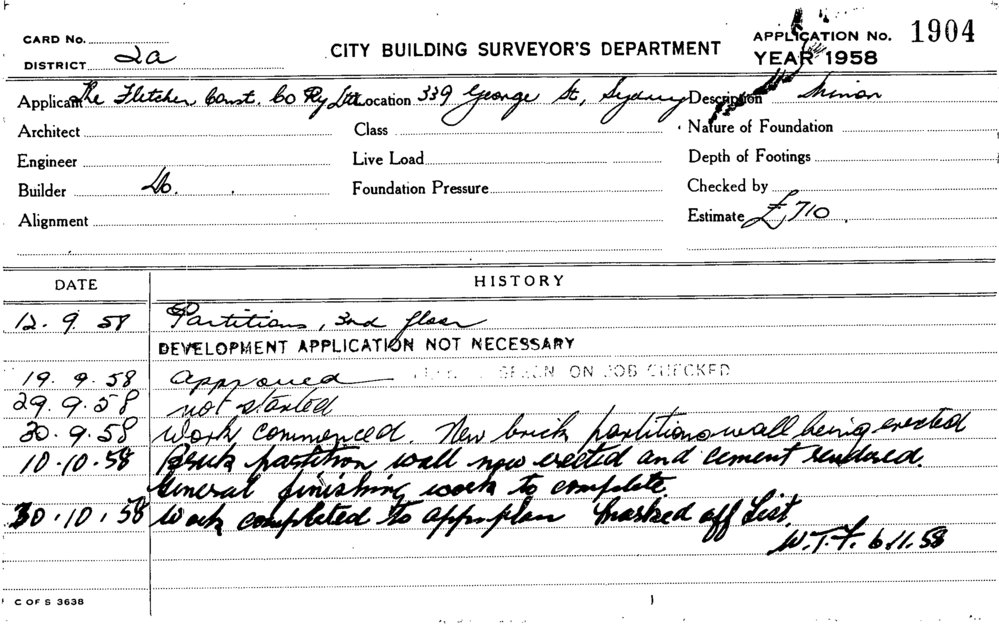 CARD No.
DISTRICT 2a
CITY BUILDING SURVEYOR'S DEPARTMENT
APPLICATION No. 1904
YEAR 1958
Applicant The Fletcher Const. Co Pty Ltd Location 339 George St, Sydney Description Minor
Architect Class Nature of Foundation
Engineer Live Load Depth of Footings
Builder Do. Foundation Pressure Checked by
Alignment Estimate £710
DATE HISTORY
12. 9. 58 Partitions, 3rd floor
DEVELOPMENT APPLICATION NOT NECESSARY
19. 9. 58 approved ON JOB CHECKED
29. 9. 58 not started
30. 9. 58 Work commenced. New brick partitions wall being erected
10. 10. 58 Brick partition wall now erected and cement rendered.
General finishing work to complete
30. 10. 58 Work completed to app. plan Marked off List.
W.T.F. 6.11.58
C OF S 3638